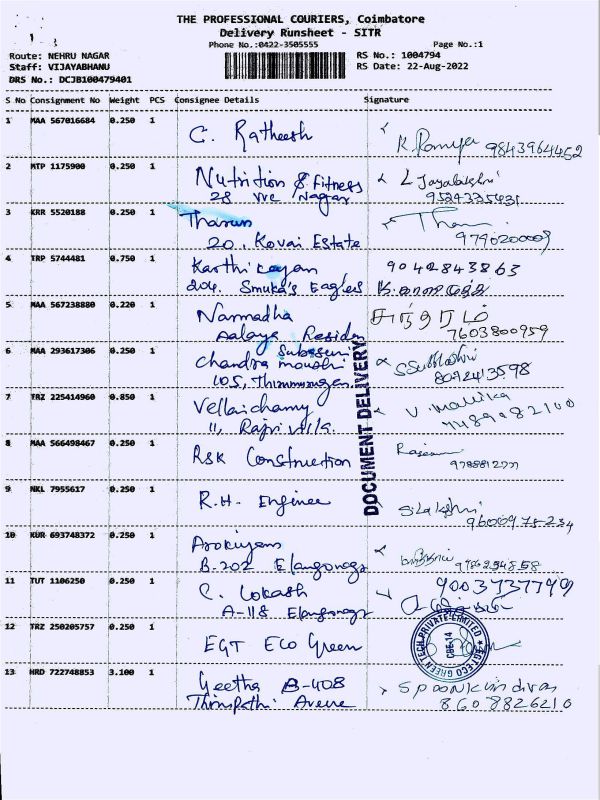 THE PROFESSIONAL COURIERS, Coimbatore
Delivery Runsheet - SITR
Phone No.:0422-3505555 Page No.:1
Route: NEHRU NAGAR RS No.: 1004794
Staff: VIJAYABHANU RS Date: 22-Aug-2022
DRS No.: DCJB100479401
S No Consignment No Weight PCS Consignee Details Signature
1 MAA 567016684 0.250 1 C. Ratheesh K. Ramya 9843964452
2 MTP 1175900 0.250 1 Nutrition & Fitness L Jayalakshri
28 VVC Nagar 9524335431
3 KRR 5520188 0.250 1 Tharun
20. Kovai Estate 9790200009
4 TRP 5744481 0.750 1 Karthikayan 9042843863
204. Smuka's Eagles
5 MAA 567238880 0.220 1 Narmadha
Aalaya Residen 7603800959
6 MAA 293617306 0.250 1 Chandra
105, 8092413598
7 TRZ 225414960 0.850 1 Vellaichamy V. Mallika
11,
8 MAA 566498467 0.250 1 RSK Construction
DOCUMENT DELIVERY
9 NKL 7955617 0.250 1 R.H. Enginee
10 KUR 693748372 0.250 1
B-202 Elangonagr
11 TUT 1106250 0.250 1 C. Lokash 9003737799
A-118 Elangonagr
12 TRZ 250205757 0.250 1 EGT Eco Green
EGT ECO GREEN TECH PRIVATE LIMITED
CBE-14
13 HRD 722748853 3.100 1 Geetha B-408
Thirupathi Avenue 8608826210